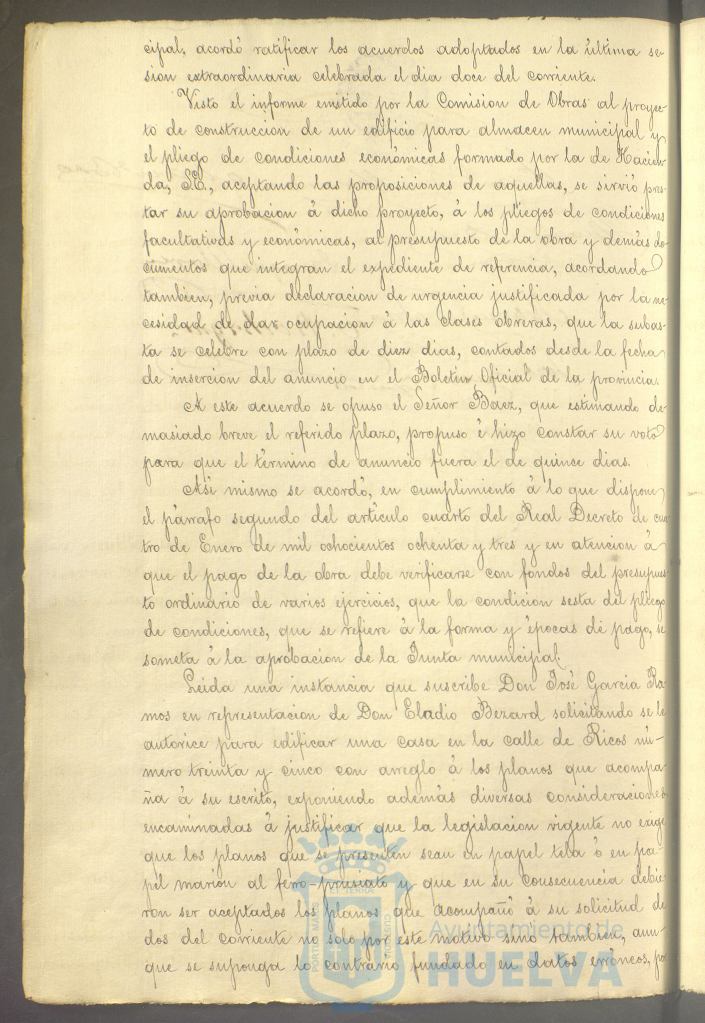 cipal, acordó ratificar los acuerdos adoptados en la última se-
sion extraordinaria celebrada el dia doce del corriente.
Visto el informe emitido por la Comision de Obras al proyec-
to de construccion de un edificio para almacen municipal y
el pliego de condiciones económicas formado por la de Hacien-
da, S.E., aceptando las proposiciones de aquellas, se sirvió pres-
tar su aprobacion á dicho proyecto, á los pliegos de condiciones
facultativas y económicas, al presupuesto de la obra y demás do-
cumentos que integran el expediente de referencia, acordando
tambien, previa declaracion de urgencia justificada por la ne-
cesidad de dar ocupacion á las clases obreras, que la subas-
ta se celebre con plazo de diez dias, contados desde la fecha
de insercion del anuncio en el Boletin Oficial de la provincia.
A este acuerdo se opuso el Señor Báez, que estimando de-
masiado breve el referido plazo, propuso é hizo constar su voto
para que el término de anuncio fuera el de quince dias.
Asi mismo se acordó, en cumplimiento á lo que dispone
el párrafo segundo del articulo cuarto del Real Decreto de cua-
tro de Enero de mil ochocientos ochenta y tres y en atencion á
que el pago de la obra debe verificarse con fondos del presupues-
to ordinario de varios ejercicios, que la condicion sesta del pliego
de condiciones, que se refiere á la forma y épocas de pago, se
someta á la aprobacion de la Junta municipal.
Leida una instancia que suscribe Don José Garcia Ra-
mos en representacion de Don Eladio Bezard solicitando se le
autorice para edificar una casa en la calle de Ricos nú-
mero treinta y cinco con arreglo á los planos que acompa-
ña á su escrito, exponiendo además diversas consideraciones
encaminadas á justificar que la legislacion vigente no exige
que los planos que se presenten sean en papel tela ó en pa-
pel marion al ferro-prusiato y que en su consecuencia debie-
ron ser aceptados los planos que acompañó á su solicitud de
dos del corriente no solo por este motivo sino tambien, aun-
que se suponga lo contrario fundado en datos erróneos, po
Ayuntamiento de
HUELVA